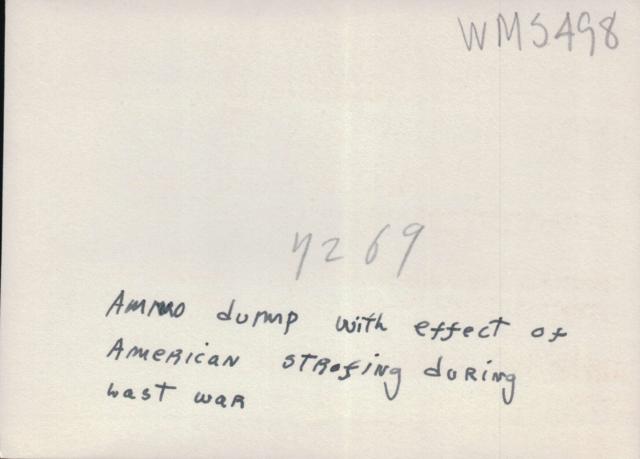 WMS498
7269
Ammo dump with effect of
American strofing during
last war